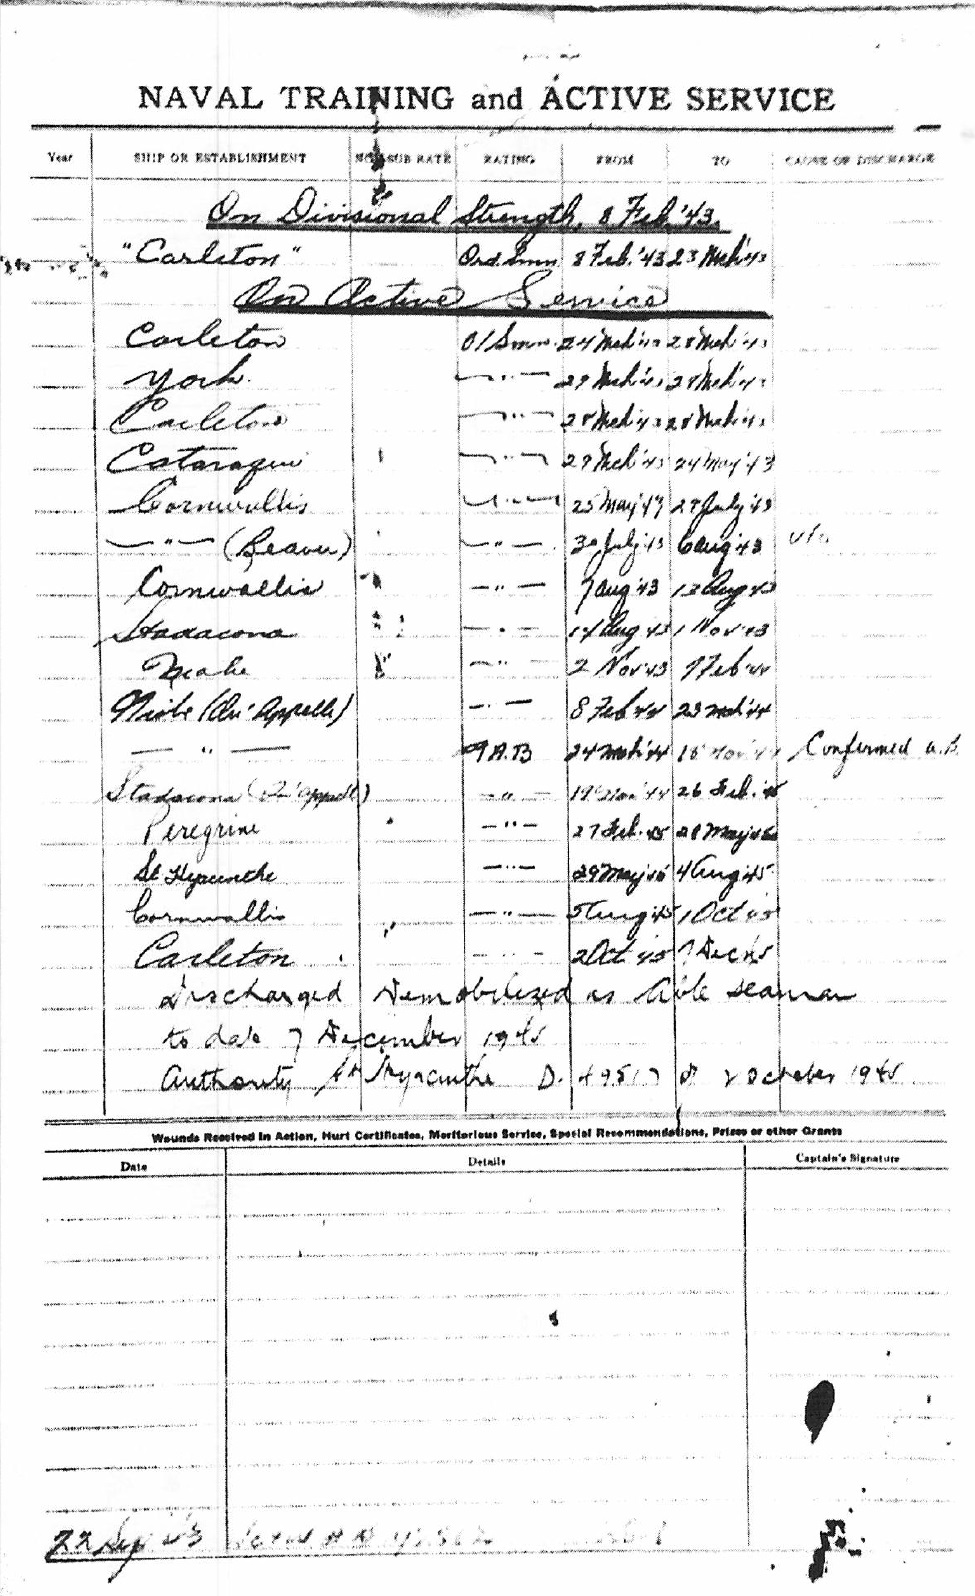 NAVAL TRAINING and ACTIVE SERVICE
Year SHIP OR ESTABLISHMENT SUB RATE RATING FROM TO CAUSE OF DISCHARGE
On Divisional Strength, 8 Feb. '43.
"Carleton" Ord. Smn 8 Feb. '43 23 Mch '43
On Active Service
Carleton O/Smn. 24 Mch '43 28 Mch '43
York. — " — Mch '43 28 Mch '43
Carleton — " — 28 Mch '43 28 Mch '43
Cataraqui — " — 29 Mch '43 24 May '43
Cornwallis — " — 25 May '43 29 July '43
— " — (Beaver) — " — 30 July '43 6 Aug '43
Cornwallis — " — 7 Aug '43 13 Aug '43
Stadacona — " — 14 Aug 43 1 Nov '43
— " — 2 Nov '43 7 Feb '44
Niobe (Qu'Appelle) — " — 8 Feb '44 23 Mch '44
— " — A.B 24 Mch '44 18 Nov '44 Confirmed A.B.
Stadacona (Qu'Appelle) — " — 19 Nov '44 26 Feb. '45
Peregrine — " — 27 Feb. 45 28 May '45
St Hyacinthe — " — 29 May '45 4 Aug '45
Cornwallis — " — 5 Aug '45 1 Oct '45
Carleton — " — 2 Oct '45 7 Dec '45
Discharged Demobilized as Able Seaman
to date 7 December 1945
Authority St Hyacinthe D. of 2 October 1945
Wounds Received in Action, Hurt Certificates, Meritorious Service, Special Recommendations, Prizes or other Grants
Date Details Captain's Signature
22 Sep 43